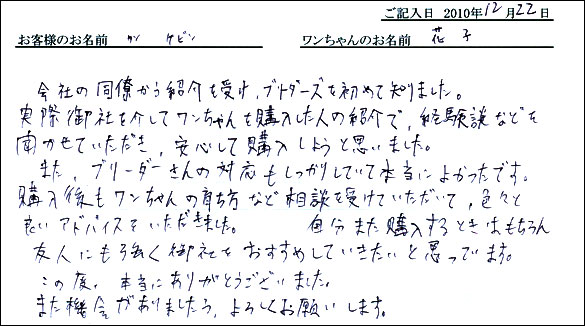 ご記入日 2010年12月22日
お客様のお名前 ケビン
ワンちゃんのお名前 花子
会社の同僚から紹介を受け、ブリーダーズを初めて知りました。
実際御社を介してワンちゃんを購入した人の紹介で、経験談などを
聞かせていただき、安心して購入しようと思いました。
また、ブリーダーさんの対応もしっかりしていて本当によかったです。
購入後もワンちゃんの育ち方など相談を受けていただいて、色々と
良いアドバイスをいただきました。 自分また購入するときはもちろん
友人にも強く御社をおすすめしていきたいと思っています。
この度、本当にありがとうございました。
また機会がありましたら、よろしくお願いします。